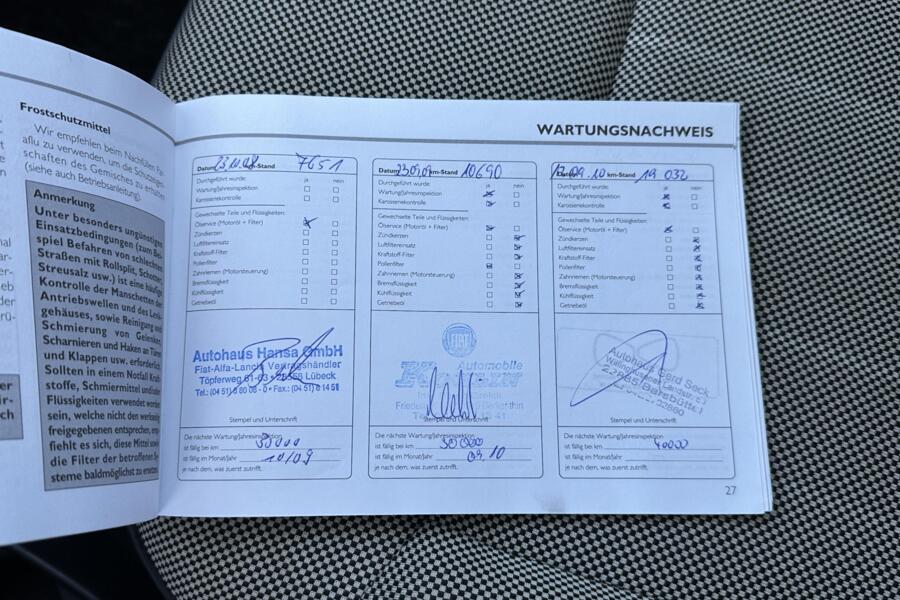 Frostschutzmittel
Wir empfehlen beim Nachfüllen Pa-
aflu zu verwenden, um die
schaften des Gemisches zu erhalten
(siehe auch Betriebsanleitung).
Anmerkung
Unter besonders ungünstigen
Einsatzbedingungen (zum Bei-
spiel Befahren von schlechten
Straßen mit Rollsplit, Schotter,
Streusalz usw.) ist eine häufige
Kontrolle der Manschetten der
Antriebswellen und des Lenk-
gehäuses, sowie Reinigung und
Schmierung von Gelenken,
Scharnieren und Haken an Türen
und Klappen usw. erforderlich.
Sollten in einem Notfall
stoffe, Schmiermittel und/oder
Flüssigkeiten verwendet worden
sein, welche nicht den
freigegebenen entsprechen,
fiehlt es sich, diese Mittel sowie
die Filter der betroffenen Sy-
steme baldmöglichst zu ersetzen
WARTUNGSNACHWEIS
Datum 23.10.08 km-Stand 7651
Durchgeführt wurde: ja nein
Wartung/Jahresinspektion
Karosseriekontrolle
Gewechselte Teile und Flüssigkeiten:
Ölservice (Motoröl + Filter)
Zündkerzen
Luftfiltereinsatz
Kraftstoff-Filter
Pollenfilter
Zahnriemen (Motorsteuerung)
Bremsflüssigkeit
Kühlflüssigkeit
Getriebeöl
Autohaus Hansa GmbH
Fiat-Alfa-Lancia Vertragshändler
Töpferweg 61-63 • Lübeck
Stempel und Unterschrift
Die nächste Wartung/Jahresinspektion
ist fällig bei km 30000
ist fällig im Monat/Jahr 10/09
je nach dem, was zuerst zutrifft.
Datum 23.09.09 km-Stand 10690
Durchgeführt wurde: ja nein
Wartung/Jahresinspektion
Karosseriekontrolle
Gewechselte Teile und Flüssigkeiten:
Ölservice (Motoröl + Filter)
Zündkerzen
Luftfiltereinsatz
Kraftstoff-Filter
Pollenfilter
Zahnriemen (Motorsteuerung)
Bremsflüssigkeit
Kühlflüssigkeit
Getriebeöl
FIAT
Automobile
Stempel und Unterschrift
Die nächste Wartung/Jahresinspektion
ist fällig bei km 30000
ist fällig im Monat/Jahr 09.10
je nach dem, was zuerst zutrifft.
09.10 km-Stand 19 032
Durchgeführt wurde: ja nein
Wartung/Jahresinspektion
Karosseriekontrolle
Gewechselte Teile und Flüssigkeiten:
Ölservice (Motoröl + Filter)
Zündkerzen
Luftfiltereinsatz
Kraftstoff-Filter
Pollenfilter
Zahnriemen (Motorsteuerung)
Bremsflüssigkeit
Kühlflüssigkeit
Getriebeöl
Autohaus Gerd Seck
22885 Barsbüttel
Stempel und Unterschrift
Die nächste Wartung/Jahresinspektion
ist fällig bei km 40000
ist fällig im Monat/Jahr
je nach dem, was zuerst zutrifft.
27